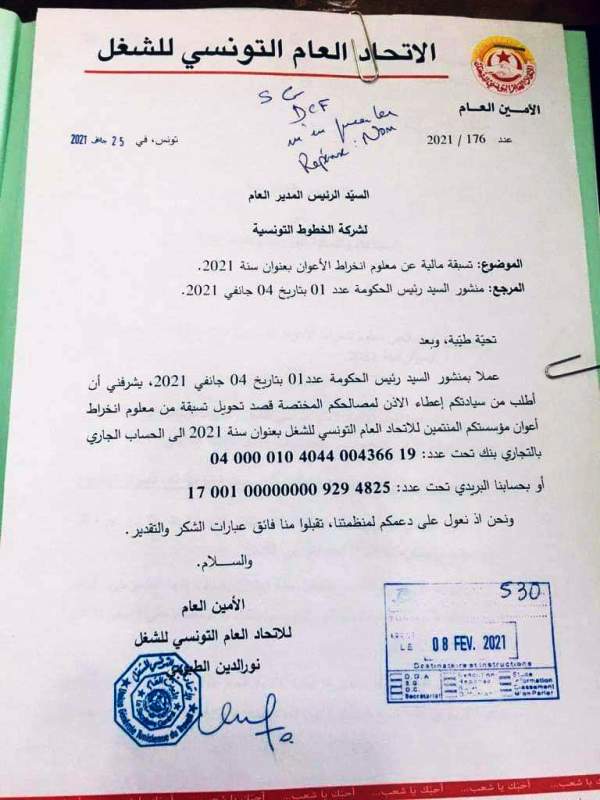 الاتحاد العام التونسي للشغل
الأمين العام
عدد 176 / 2021
تونس، في 25 جانفي 2021
SG
DCF
Réponse : Non
السيّد الرئيس المدير العام
لشركة الخطوط التونسية
الموضوع: تسبقة مالية عن معلوم انخراط الأعوان بعنوان سنة 2021.
المرجع: منشور السيد رئيس الحكومة عدد 01 بتاريخ 04 جانفي 2021.
تحيّة طيّبة، وبعد
عملا بمنشور السيد رئيس الحكومة عدد01 بتاريخ 04 جانفي 2021، يشرفني أن
أطلب من سيادتكم إعطاء الاذن لمصالحكم المختصة قصد تحويل تسبقة من معلوم انخراط
أعوان مؤسستكم المنتمين للاتحاد العام التونسي للشغل بعنوان سنة 2021 الى الحساب الجاري
بالتجاري بنك تحت عدد: 19 004366 4044 010 000 04
أو بحسابنا البريدي تحت عدد: 4825 929 00000000 001 17
ونحن اذ نعول على دعمكم لمنظمتنا، تقبلوا منا فائق عبارات الشكر والتقدير.
والســلام.
الأمين العام
للاتحاد العام التونسي للشغل
نورالدين الطبوبي
530
LE 08 FEV. 2021
Destinataire et instructions
أحبّك يا شعب... أحبّك يا شعب... أحبّك يا شعب...